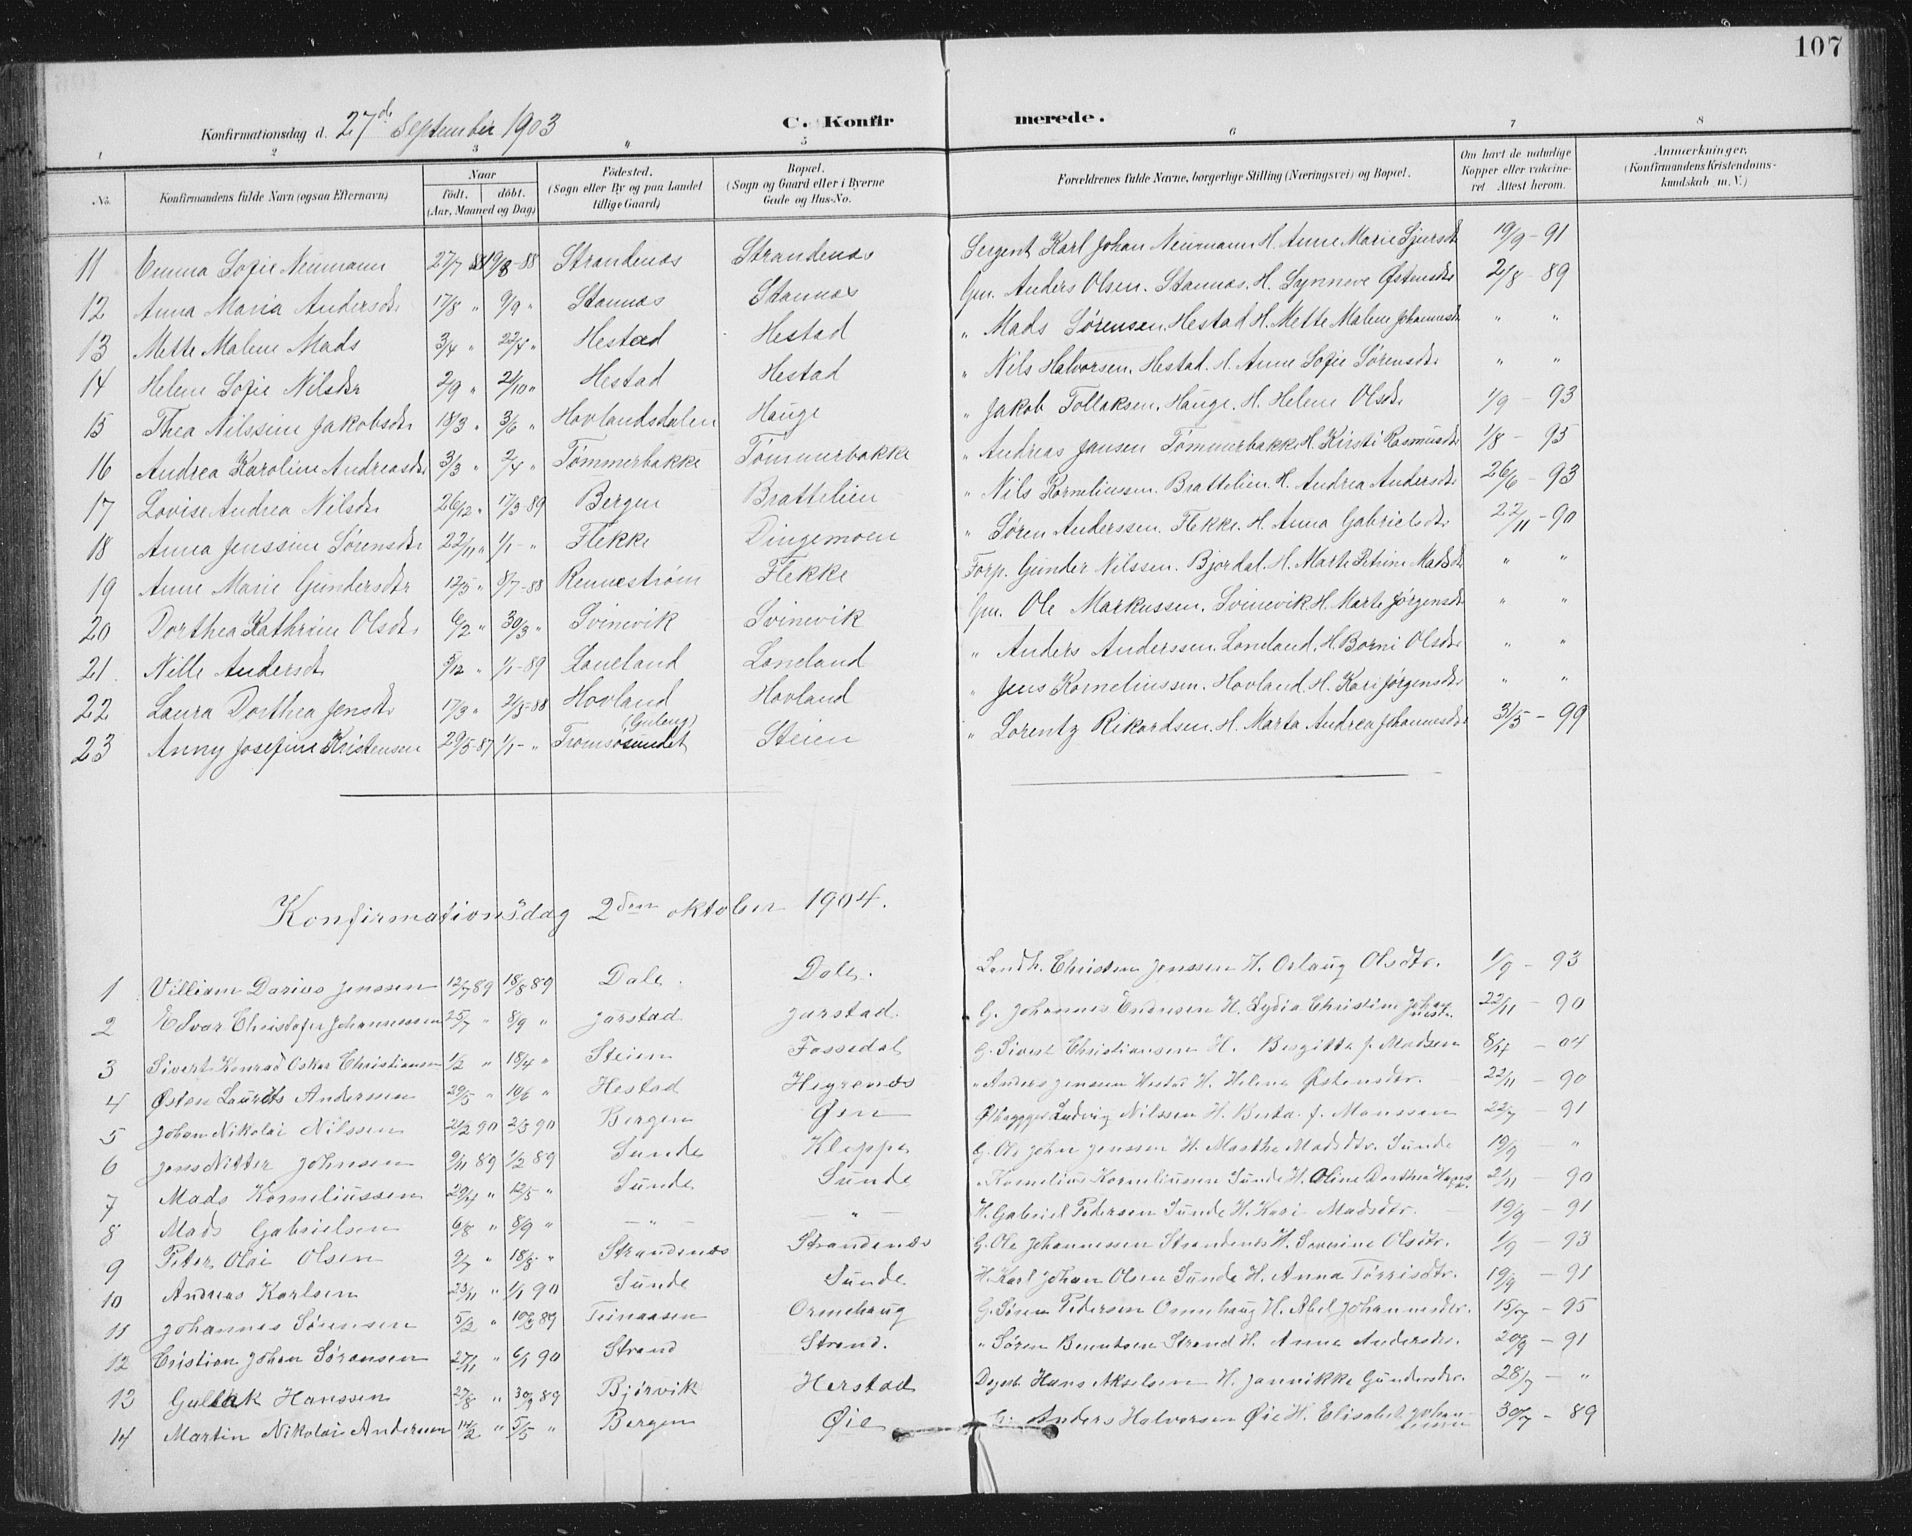 107
Konfirmationsdag d. 27de September 1903 C. Konfirmerede.
1 2 3 " 5 6 7 8
No. Konfirmandens fulde Navn (ogsaa Efternavn) Naar født. døbt. (Aar, Maaned og Dag) Fødested. (Sogn eller By og paa Landet tillige Gaard) Bopæl. (Sogn og Gaard eller i Byerne Gade og Hus-No. Forældrenes fulde Navne, borgerlige Stilling (Næringsvei) og Bopæl. Om havt de naturlige Kopper eller vakcineret Attest herom. Anmærkninger. (Konfirmandens Kristendomskundskab m. V.)
11 Emma Sofie Neumann 27/7 88 19/8-88 Strandenæs Strandenæs Sergent Karl Johan Neumann H. Anne Marie Sjursdt 19/9-91
12 Anna Maria Andersdtr 17/8 " 9/9 " Stannæs Stannæs Gm. Anders Olsen. Stannæs. H. Synneve Østensdtr 2/8-89
13 Mette Malene Mads 3/4 " 22/4 " Hestad Hestad " Mads Sørensen, Hestad H. Mette Malene Johannesdt " "
14 Helene Sofie Nilsdtr 2/9 " 2/10 " Hestad Hestad " Nils Halvorsen, Hestad. H. Anne Sofie Sørensdtr " "
15 Thea Nilssine Jakobsdtr 18/3 " 3/6 " Hovlandsdalen Hauge " Jakob Tollaksen, Hauge. H. Helene Olsdtr 1/9-93
16 Andrea Karoline Andreasdtr 3/3 " 2/4 " Tømmerbakke Tømmerbakke " Andreas Jansen Tømmerbakke H. Kirsti Rasmusdtr 1/8-95
17 Lovise Andrea Nilsdtr 26/12 " 17/3-89 Bergen Brattelien " Nils Korneliussen. Brattelien H. Andrea Andersdtr 26/6-93
18 Anna Jenssine Sørensdtr 22/11 " 1/1- " Flekke Dingemoen " Søren Anderssen. Flekke. H. Anna Gabrielsdtr 22/11-90
19 Anne Marie Gundersdtr 12/5 " 8/7-88 Rennestrøm Flekke Forp. Gunder Nilssen. Bjordal. H. Marte Petrine Madsdt " "
20 Dorthea Kathrine Olsdtr 6/2 " 30/3 " Svinevik Svinevik Gm. Ole Markussen, Svinevik H. Marte Jørgensdt " "
21 Nille Andersdt 5/12 " 1/1-89 Loneland Loneland " Anders Anderssen, Loneland, H. Borni Olsdtr " "
22 Laura Dorthea Jensdtr 17/3 " 21/5-88 Hovland Hovland " Jens Korneliussen. Hovland. H. Kari Jørgensdtr " "
23 Anny Josefine Kristensen 29/5-87 1/1- " Tromsøsundet Steien " Lorentz Rikardsen, H. Marta Andrea Johannesdt 31/5-99
Konfirmationsdag 2den oktober 1904.
1 Villiam Darius Jenssen 12/7 89 18/8 89 Dale. Dale. Landh. Christen Jenssen H. Oslaug Olsdtr. 1/9-93
2 Edvar Christofer Johannessen 25/7 " 8/9 " Jarstad Jarstad G. Johannes Endresen H. Lydia Christine Johannesdt. 22/11-90
3 Sivert Konrad Oskar Christiansen 1/2 " 18/4 " Steien Fossedal G. Sivert Christiansen H. Bergitte f. Madsen 8/4-04
4 Østen Laurits Andersen 29/5 " 10/6 " Hestad Hegrenæs " Anders Jenssen Hestad H. Helene Østensdtr. 22/11-90
5 Johan Nikolai Nilssen 21/2 90 2/3 90 Bergen Øen Ølbrygger Ludvig Nilssen H. Berta f. Monssen 22/7-91
6 Jens Nitter Johnsen 9/11 89 1/2 89 Sunde Kleppe G. Ole John Jenssen H. Marthe Madsdtr. Sunde 19/9- "
7 Mads Korneliussen 29/4 " 12/5 " Sunde Sunde " Kornelius Korneliussen Sunde H. Oline Dorthea Hans 21/11-90
8 Mads Gabrielsen 6/8 " 8/9 " — " — — " — H. Gabriel Pedersen Sunde H. Kari Madsdtr. 19/9-91
9 Peter Olai Olsen 9/7 " 18/8 " Strandenæs Strandenæs G. Ole Johannessen Strandenes H. Severine Olsdtr. 1/9-93
10 Andreas Karlsen 23/11 " 1/1 90 Sunde Sunde H. Karl Johan Olsen Sunde H. Anna Tørrisdtr. 19/9-91
11 Johannes Sørensen 5/2 " 10/3 89 Teinaasen Ormehaug G. Søren Pedersen Ormehaug H. Abel Johannesdtr. 15/7-95
12 Cristian Johan Søransen 27/11 " 6/1 90 Strand Strand. " Søren Berntsen Strand H. Anne Andersdtr. 20/9-91
13 Gullak Hanssen 27/8 " 30/9 89 Bjørvik Herstad Dagarb. Hans Akselsen H. Jannikke Gundersdtr. 28/7- "
14 Martin Nikolai Andersen 14/2 " 5/5 " Bergen Øie G. Anders Halvorsen Øie H. Elisabet 30/7-89